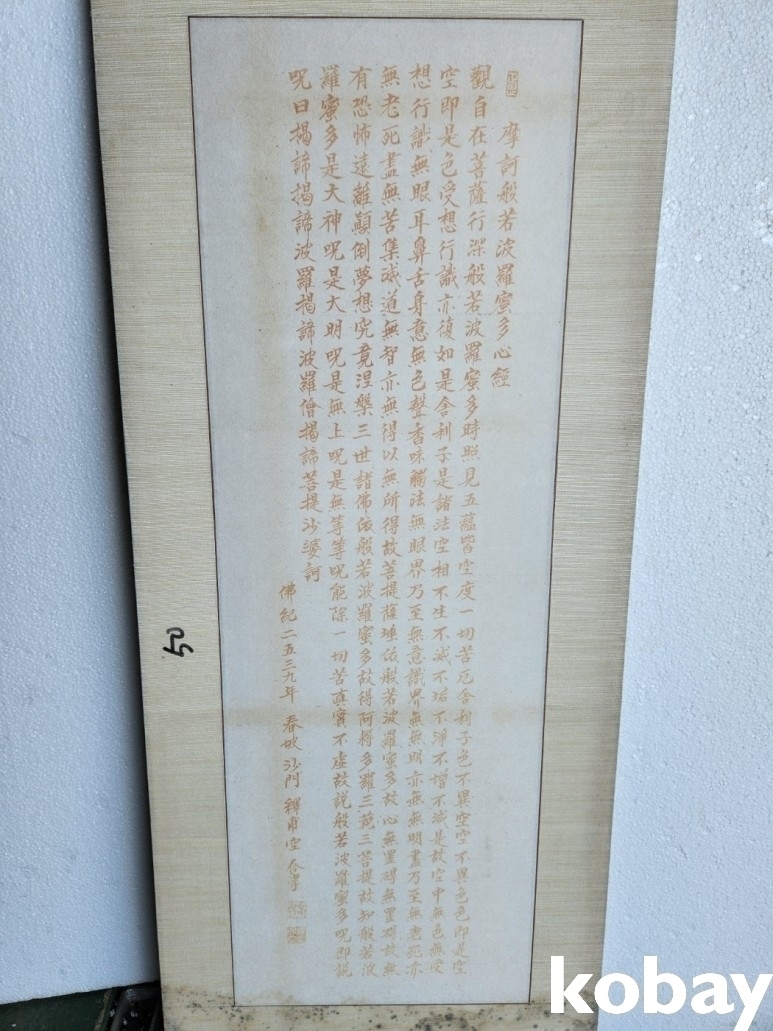 摩訶般若波羅蜜多心經
觀自在菩薩行深般若波羅蜜多時照見五蘊皆空度一切苦厄舍利子色不異空空不異色色即是空
空即是色受想行識亦復如是舍利子是諸法空相不生不滅不垢不淨不增不減是故空中無色無受
想行識無眼耳鼻舌身意無色聲香味觸法無眼界乃至無意識界無無明亦無無明盡乃至無老死亦
無老死盡無苦集滅道無智亦無得以無所得故菩提薩埵依般若波羅蜜多故心無罣礙無罣礙故無
有恐怖遠離顛倒夢想究竟涅槃三世諸佛依般若波羅蜜多故得阿耨多羅三藐三菩提故知般若波
羅蜜多是大神呪是大明呪是無上呪是無等等呪能除一切苦真實不虛故說般若波羅蜜多呪即說
呪曰揭諦揭諦波羅揭諦波羅僧揭諦菩提沙婆訶
佛紀二五三九年 春坡 沙門 釋甫空 合掌
50
kobay